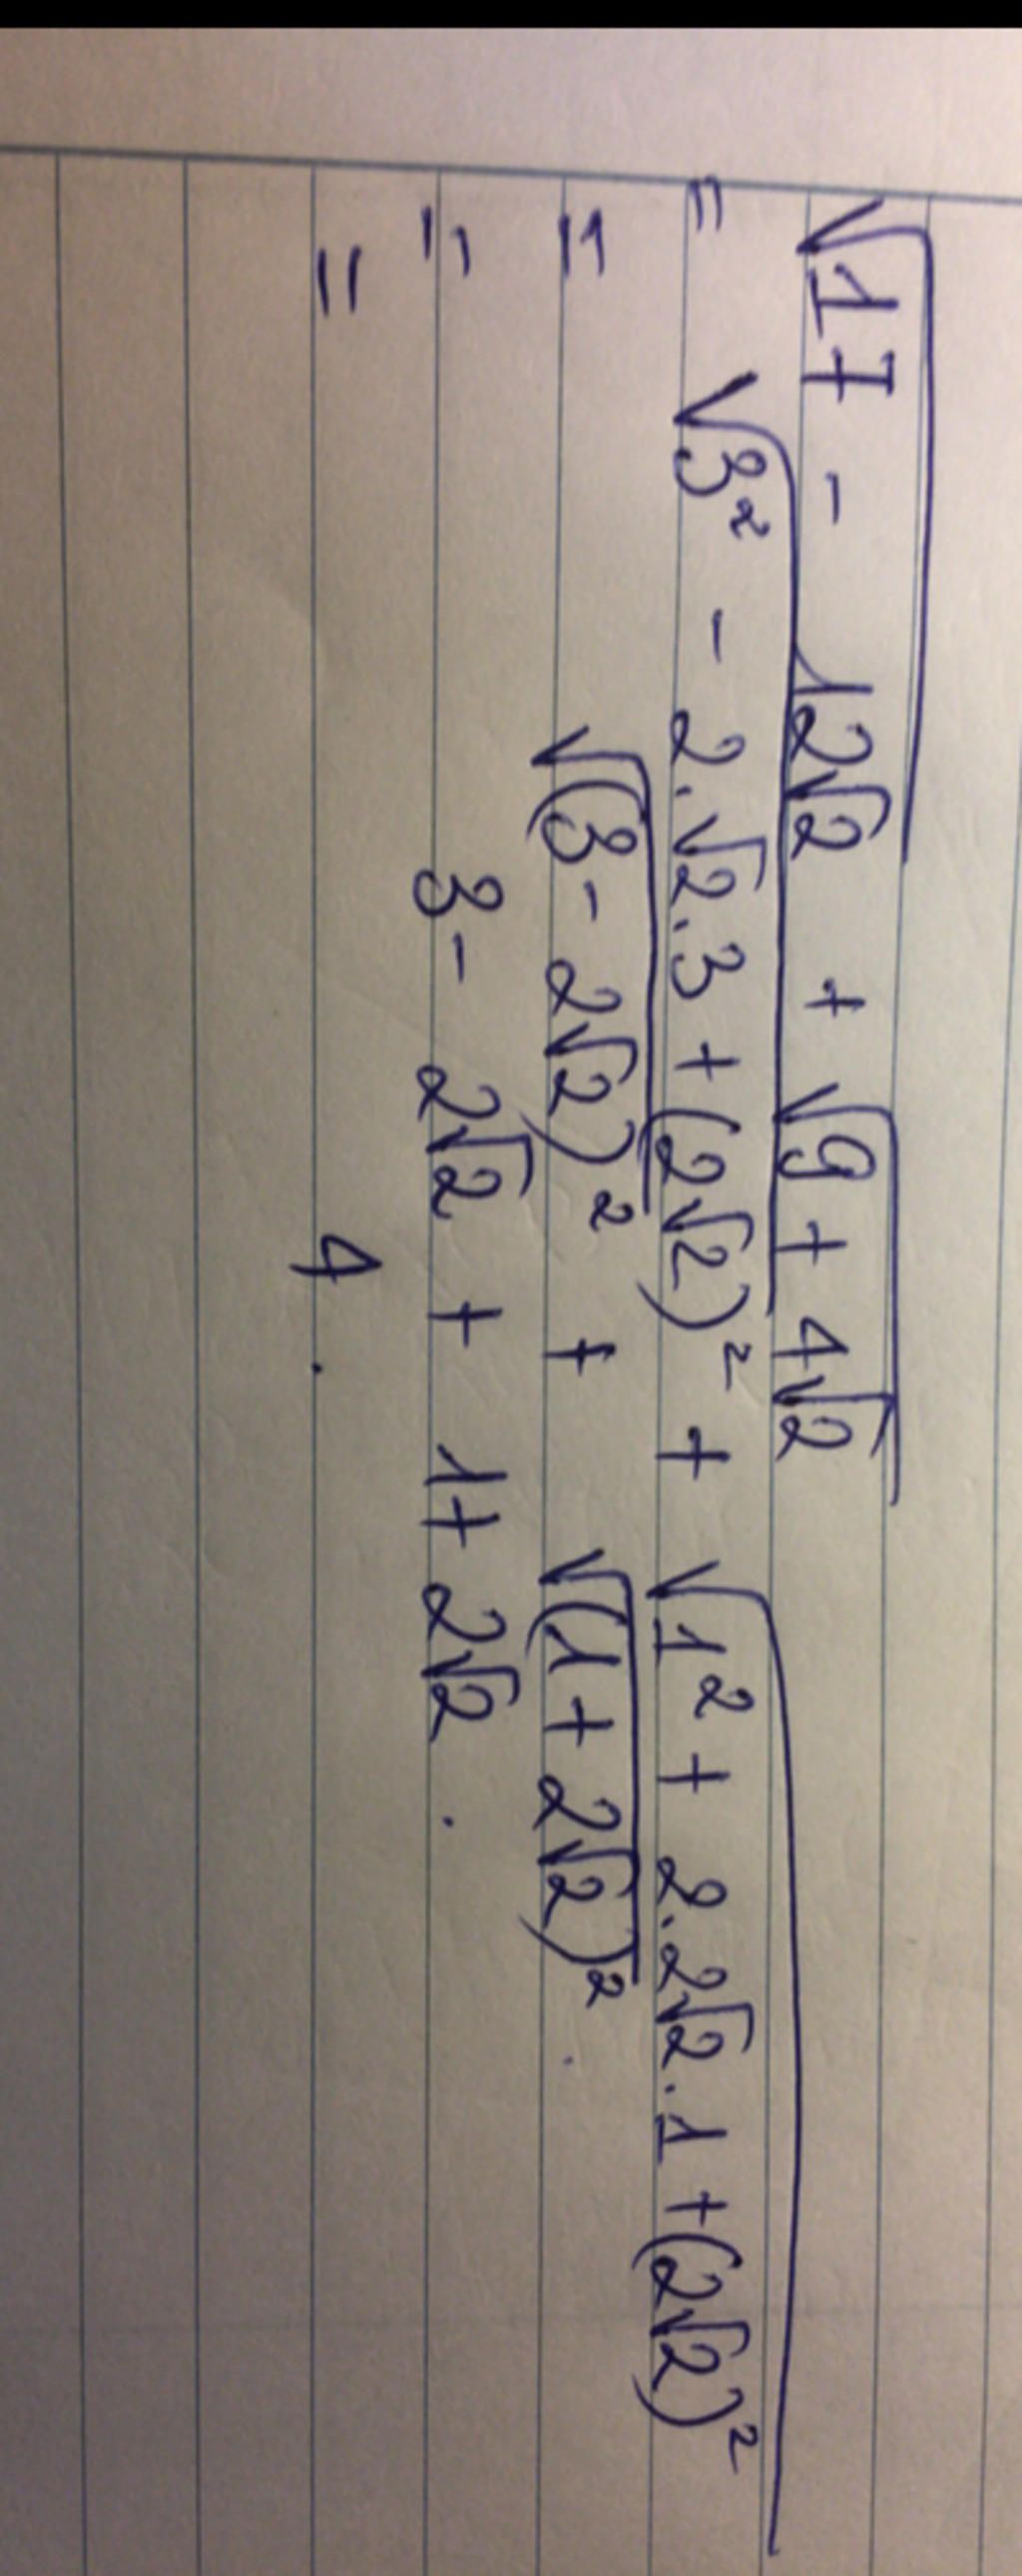 √(17 - 12√2) + √(9 + 4√2)
= √(3² - 2.√2.3 + (2√2)²) + √(1² + 2.2√2.1 + (2√2)²)
= √((3 - 2√2)²) + √((1 + 2√2)²).
= 3 - 2√2 + 1 + 2√2.
= 4.